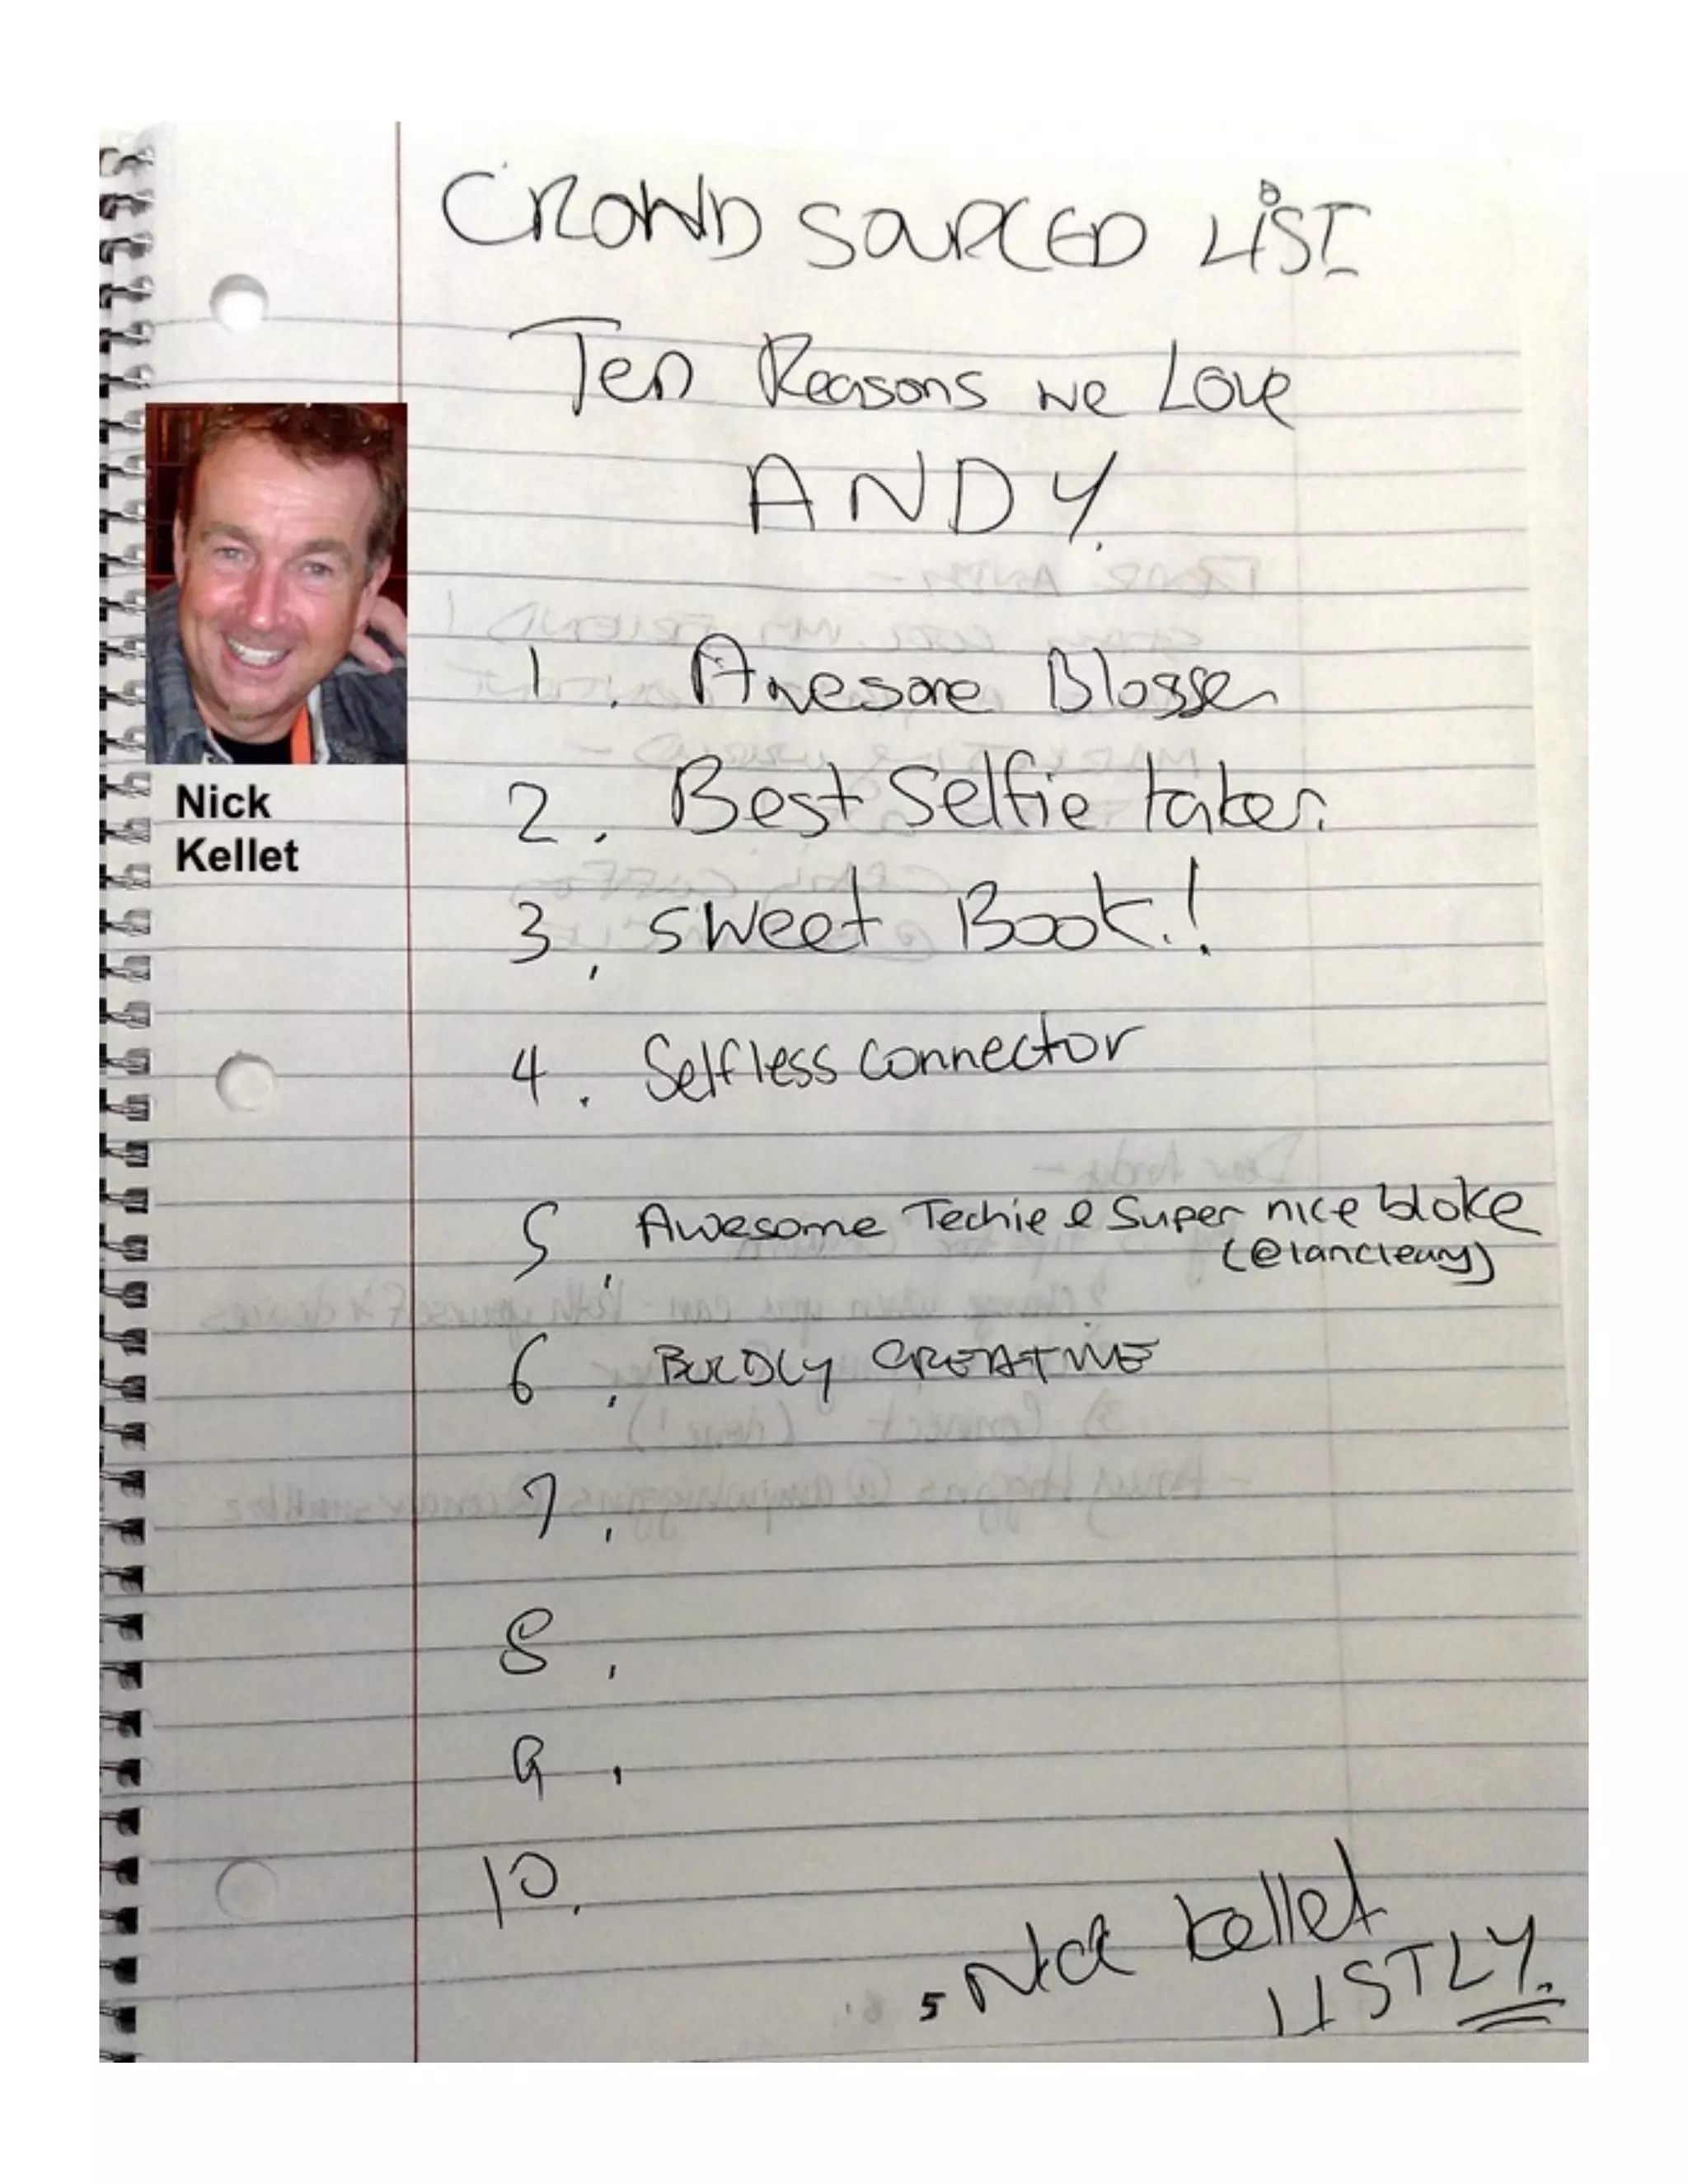 CROWD SOURCED LIST
Ten Reasons we Love
ANDY.
1. Awesome Blogger
2. Best Selfie taker.
3. Sweet Book.!
4. Selfless connector
5. Awesome Techie & Super nice bloke
(@iancleary)
6. BOLDLY CREATIVE
7.
8.
9.
10.
Nick Kellet
LISTLY.
5
Nick
Kellet